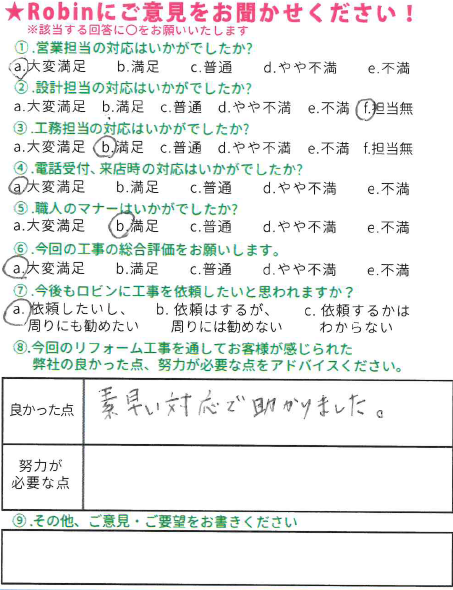 ★Robinにご意見をお聞かせください！
※該当する回答に〇をお願いいたします
①.営業担当の対応はいかがでしたか?
a.大変満足 b.満足 c.普通 d.やや不満 e.不満
②.設計担当の対応はいかがでしたか?
a.大変満足 b.満足 c.普通 d.やや不満 e.不満 f.担当無
③.工務担当の対応はいかがでしたか?
a.大変満足 b.満足 c.普通 d.やや不満 e.不満 f.担当無
④.電話受付、来店時の対応はいかがでしたか?
a.大変満足 b.満足 c.普通 d.やや不満 e.不満
⑤.職人のマナーはいかがでしたか?
a.大変満足 b.満足 c.普通 d.やや不満 e.不満
⑥.今回の工事の総合評価をお願いします。
a.大変満足 b.満足 c.普通 d.やや不満 e.不満
⑦.今後もロビンに工事を依頼したいと思われますか？
a. 依頼したいし、 b. 依頼はするが、 c. 依頼するかは
周りにも勧めたい 周りには勧めない わからない
⑧.今回のリフォーム工事を通してお客様が感じられた
弊社の良かった点、努力が必要な点をアドバイスください。
良かった点 素早い対応で助かりました。
努力が
必要な点
⑨.その他、ご意見・ご要望をお書きください